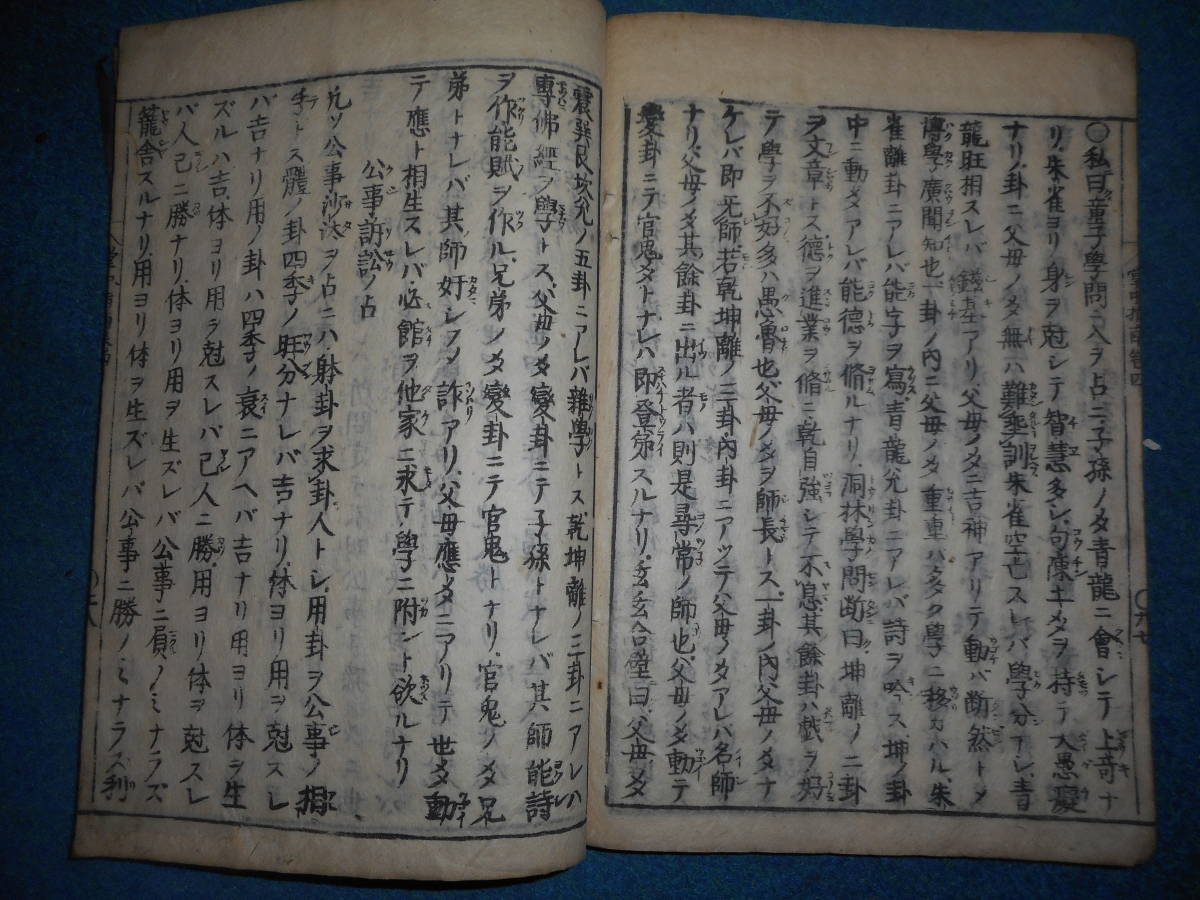 ○私曰童子學問ニ入ヲ占ニ子孫ノ爻青龍ニ會シテ上奇ナ
リ朱雀ヨリ身ヲ尅シテ智慧多シ句陳土爻ヲ持テ大愚
ナリ卦ニ父母ノ爻無ハ難訓朱雀空亡スレバ學分アレ青
龍旺相スレバアリ父母ノ爻ニ吉神アリテ動バ断然ト
博學廣聞知也一卦ノ内ニ父母ノ爻重重バ多ク學ニ移カハル朱
雀離卦ニアレバ能字ヲ寫青龍兊卦ニアレバ詩ヲ吟ス坤ノ卦
中ニ動爻アレバ能德ヲ脩ルナリ洞林學問断曰坤離ノ二卦
ヲ文章トス德ヲ進業ヲ脩ニ乾自強シテ不息其餘卦ハ戯ヲ好
テ學ヲ不好多ハ愚魯也父母ノ爻ヲ師長トス一卦ノ內父母ノ爻ナ
ケレバ即无師若乾坤離ノ三卦內卦ニアツテ父母ノ爻アレバ名師
ナリ父母ノ爻其餘卦ニ出ル者ハ則是尋常ノ師也父母ノ爻動テ
變卦ニテ官鬼爻トナレハ即登第スルナリ曰父母爻
震巽艮坎兊ノ五卦ニアレバ雜學トス乾坤離ノ三卦ニアレハ
專佛經ヲ學トス父母ノ爻變卦ニテ子孫トナレバ其師能詩
ヲ作能賦ヲ作ル兄弟ノ爻變卦ニテ官鬼トナリ官鬼ノ爻兄
弟トナレバ其師好シフ詐アリ父母應爻ニアリテ世爻動
テ應ト相生スレバ必館ヲ他家ニ求テ學ニ附ント欲ルナリ
公事訴訟ノ占
凢ソ公事沙汰ヲ占ニハ射卦ヲ求卦人トシ用卦ヲ公事ノ相
手トス體ノ卦四季ノ旺分ナレバ吉ナリ体ヨリ用ヲ尅スレ
バ吉ナリ用ノ卦ハ四季ノ衰ニアヘバ吉ナリ用ヨリ体ヲ生
ズルハ吉体ヨリ用ヲ尅スレバ己人ニ勝用ヨリ体ヲ尅スレ
バ人己ニ勝ナリ体ヨリ用ヲ生ズレバ公事ニ負ノミナラズ
籠舎スルナリ用ヨリ体ヲ生ズレバ公事ニ勝ノミナラズ利